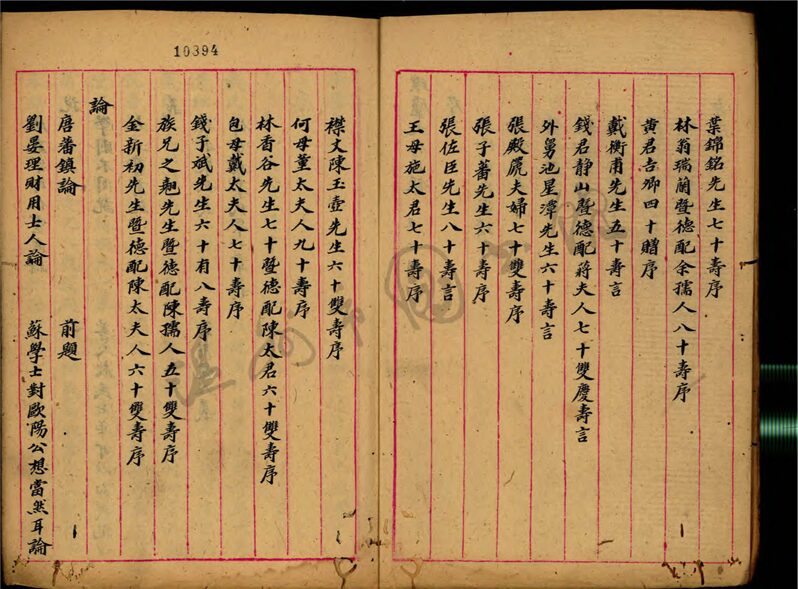 葉錦銘先生七十壽序
林翁瑞蘭暨德配余孺人八十壽序
黃君吉卿四十贈序
戴衡甫先生五十壽言
錢君靜山暨德配蔣夫人七十雙慶壽言
外舅池星漳先生六十壽言
張殿麃夫婦七十雙壽序
張子蕃先生六十壽序
張佐臣先生八十壽言
王母施太君七十壽序
10394
襟丈陳玉壺先生六十雙壽序
何母董太夫人九十壽序
林香谷先生七十暨德配陳太君六十雙壽序
包母戴太夫人七十壽序
錢子斌先生六十有八壽序
族兄之翹先生暨德配陳孺人五十雙壽序
金新初先生暨德配陳太夫人六十雙壽序
論
唐藩鎮論 前題
劉晏理財用士人論 蘇學士對歐陽公想當然耳論